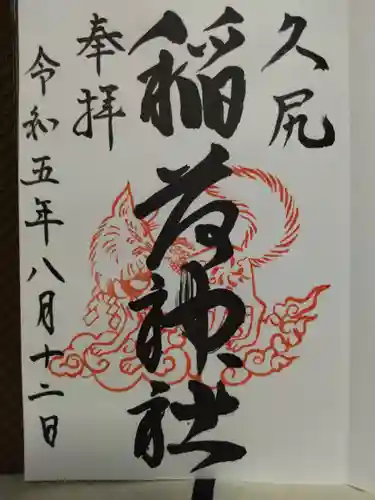 久尻
稲荷神社
奉拝
令和五年八月十二日